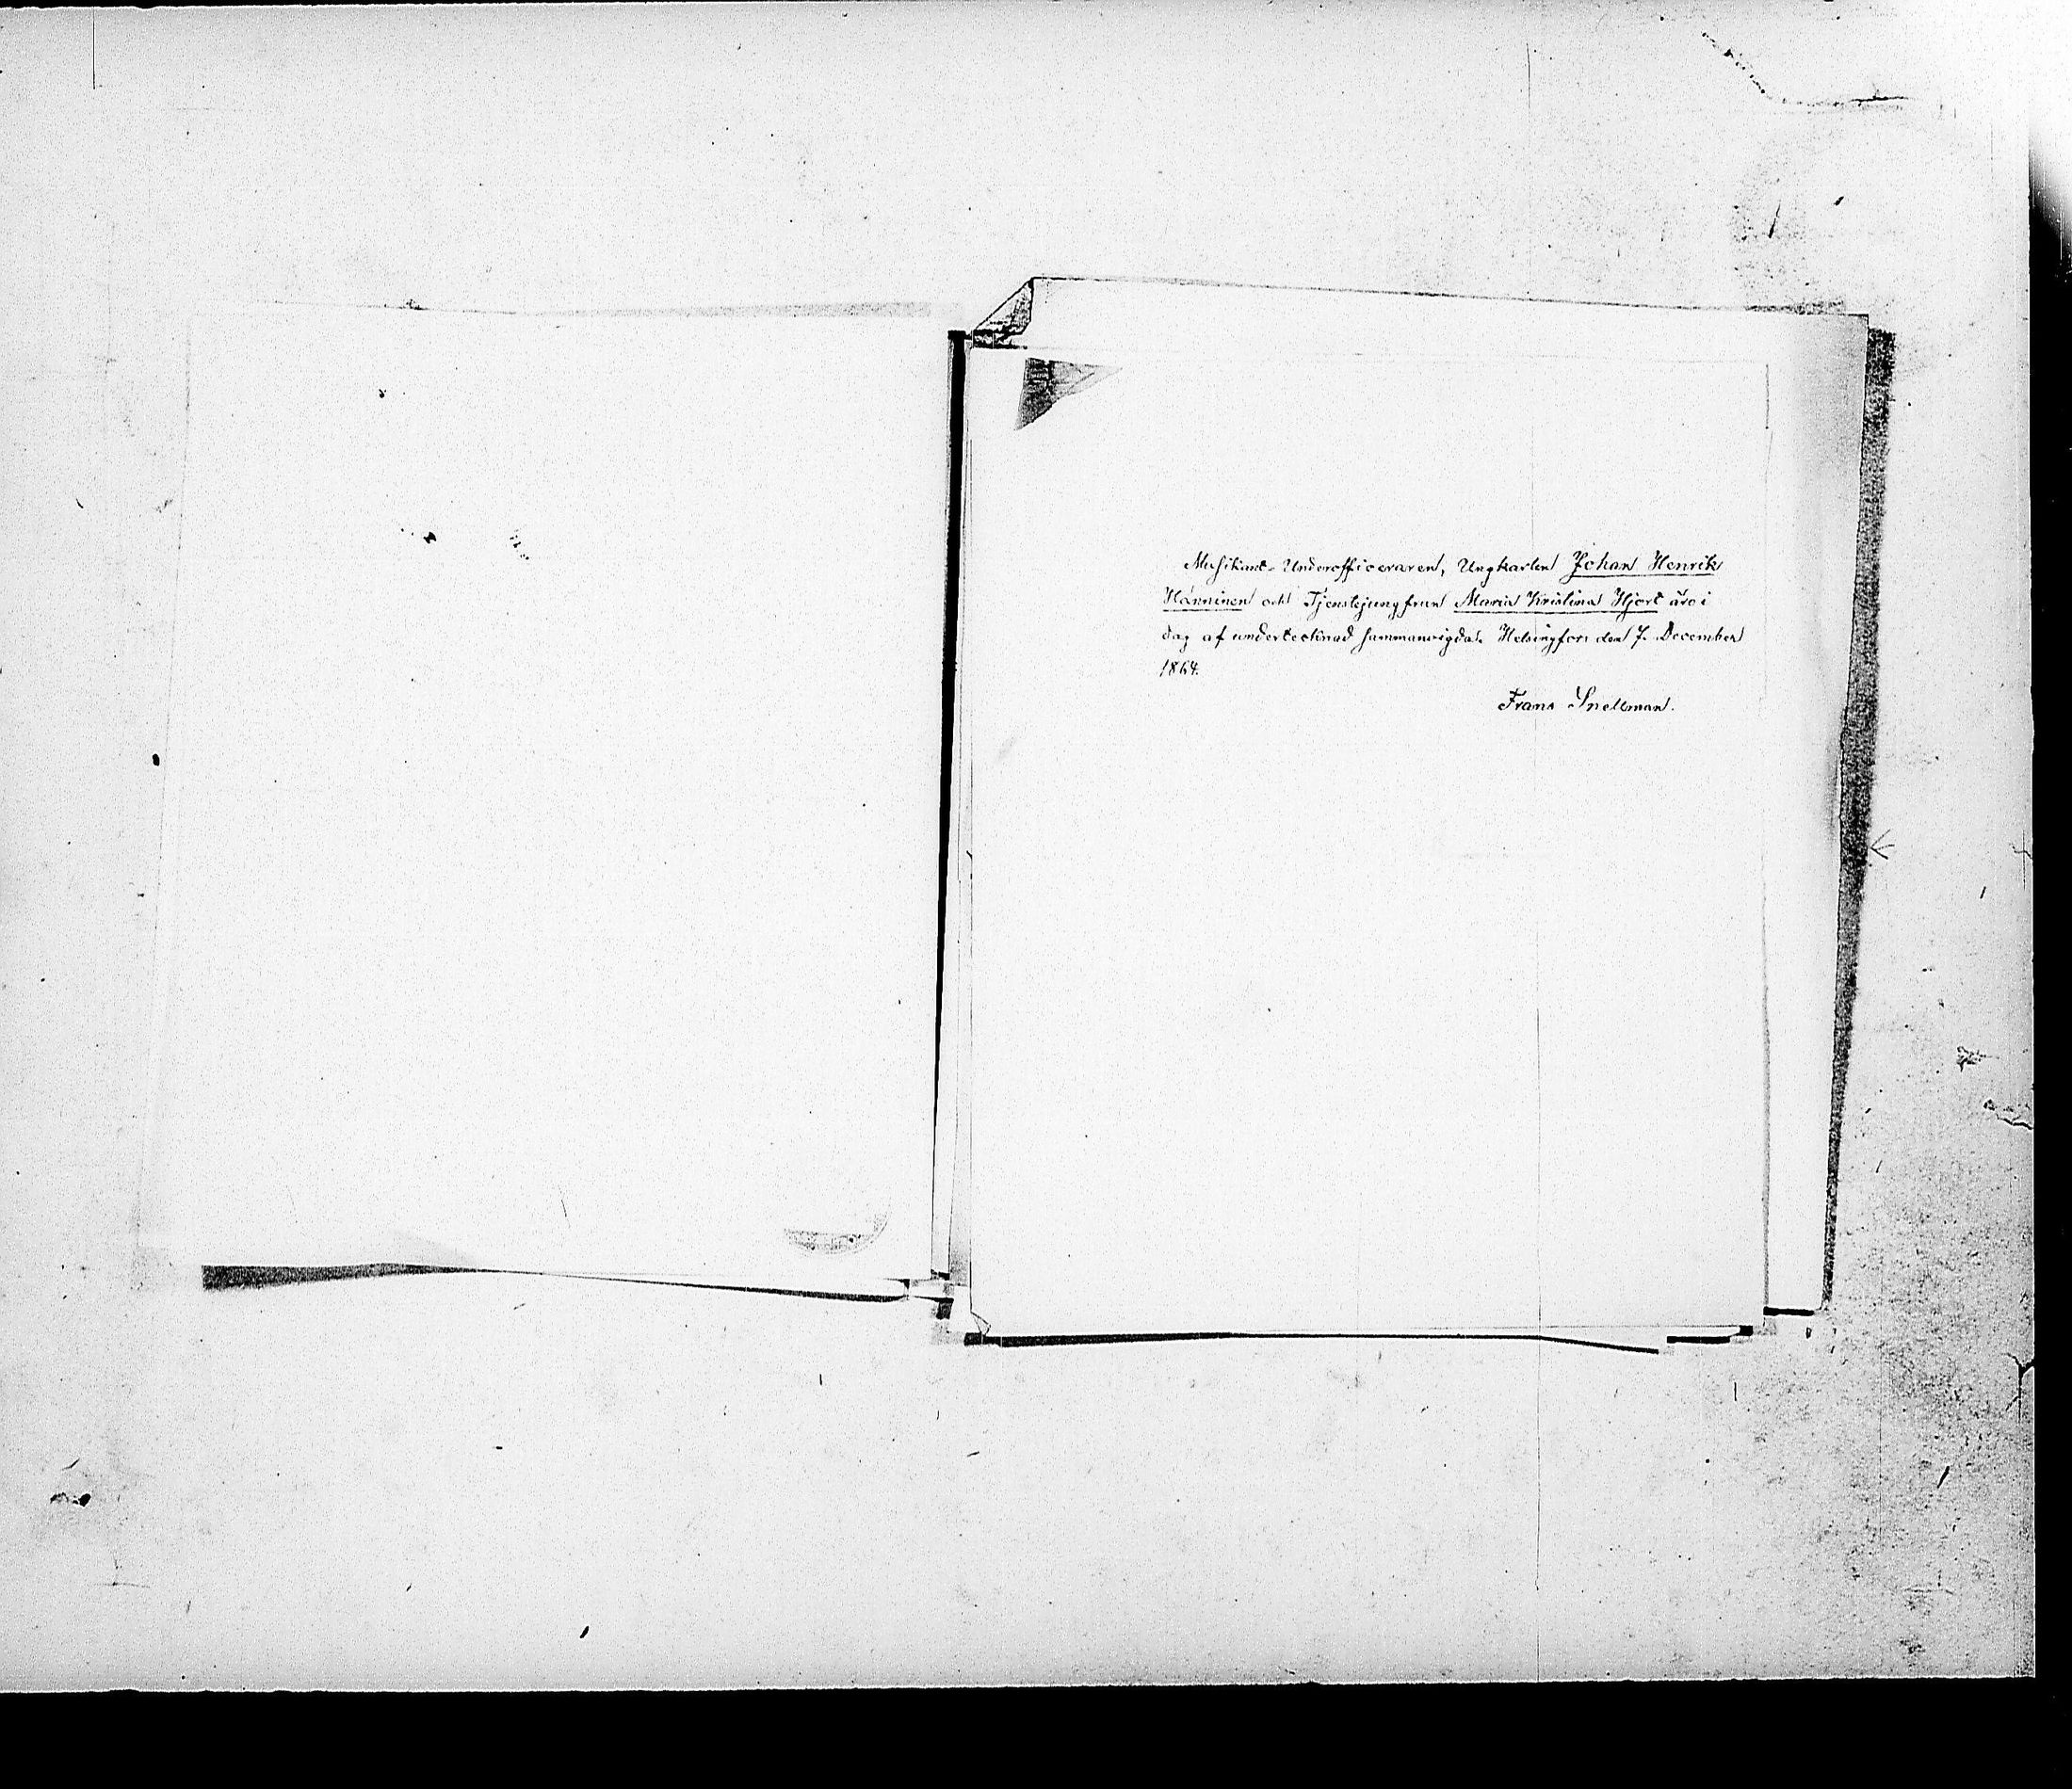 Musikant-Underofficeraren, Ungkarlen Johan Henrik
Hänninen och Tjenstejungfrun Maria Kristina Hjort äro i
dag af undertecknad sammanvigda. Helsingfors den 7. December
1864.
Frans Snellman.